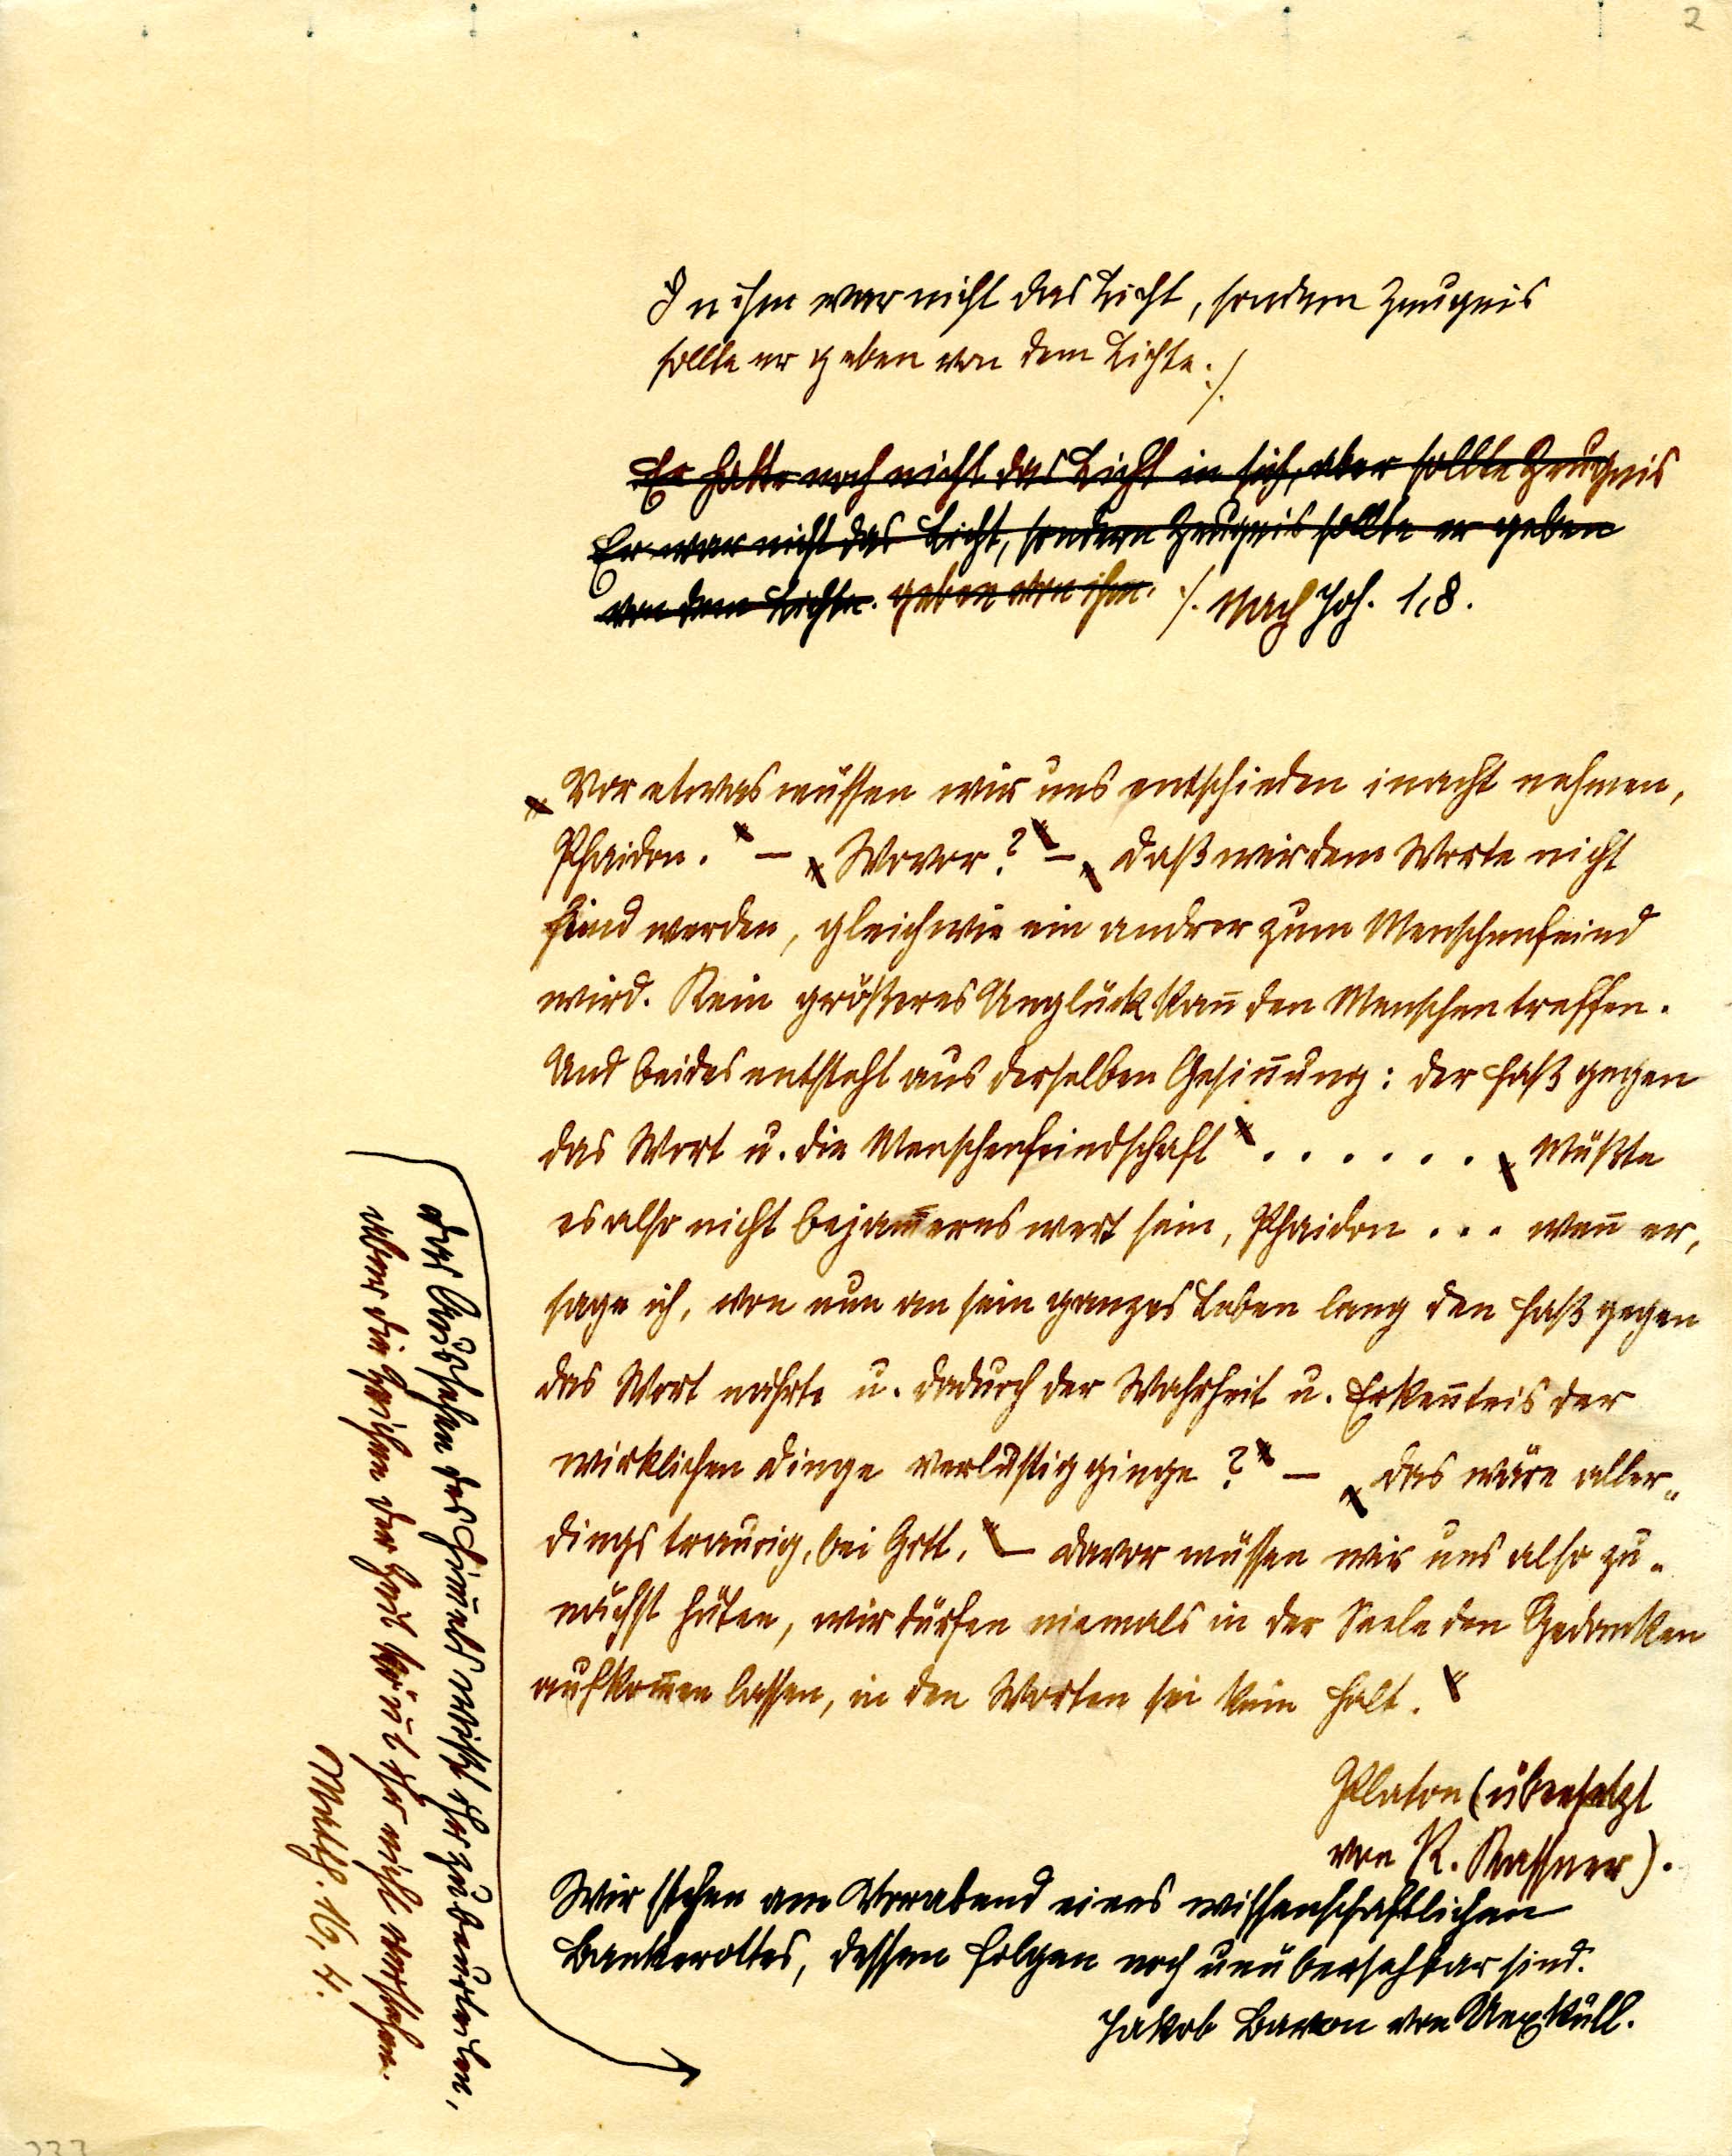 2
In ihm war nicht das Licht, sondern Zeugnis
sollte er geben von dem Lichte. ./.
Er hatte noch nicht das Licht in sich, aber sollte Zeugnis
Er war nicht das Licht, sondern Zeugnis sollte er geben
von dem Lichte. geben von ihm. ./. Nach Joh. 1,8.
„Vor etwas müssen wir uns entschieden inacht nehmen,
Phaidon.“ – „Wovor?“ – „Daß wir dem Worte nicht
feind werden, gleichwie ein andrer zum Menschenfeind
wird. Kein größeres Unglück kan̄ den Menschen treffen.
Und beides entsteht aus derselben Gesin̄ung: der Haß gegen
das Wort u. die Menschenfeindschaft“ . . . . . . „Müßte
es also nicht bejam̄ernswert sein, Phaidon . . . wen̄ er,
sage ich, von nun an sein ganzes Leben lang den Haß gegen
das Wort nährte u. dadurch der Wahrheit u. Erken̄tnis der
wirklichen Dinge verlustig ginge?“ – „Das wäre aller-
dings traurig, bei Gott.“ – Davor müssen wir uns also zu-
nächst hüten, wir dürfen niemals in der Seele den Gedanken
aufkom̄en lassen, in den Worten sei kein Halt.“
Platon (übersetzt
von R. Kassner).
Wir stehen am Vorabend eines wissenschaftlichen
Bankerottes, dessen Folgen noch unübersehbar sind.
Jakob Baron von Uexküll.
Das Aussehen des Him̄els wißt ihr zu beurteilen,
aber die Zeichen der Zeit kön̄t ihr nicht verstehen.
Matth. 16, 4.
233